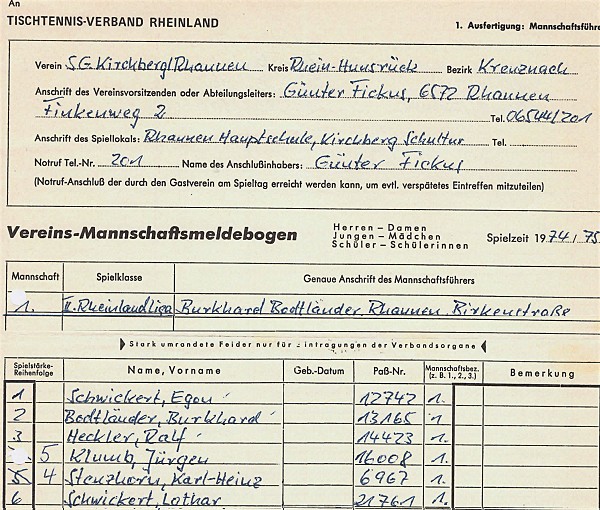 An
TISCHTENNIS-VERBAND RHEINLAND
1. Ausfertigung: Mannschaftsführe
Verein S.G. Kirchberg/Rhaunen Kreis Rhein-Hunsrück Bezirk Kreuznach
Anschrift des Vereinsvorsitzenden oder Abteilungsleiters: Günter Fickus, 6572 Rhaunen
Finkenweg 2 Tel. 06544/201
Anschrift des Spiellokals: Rhaunen Hauptschule, Kirchberg Schultur Tel.
Notruf Tel.-Nr. 201 Name des Anschlußinhabers: Günter Fickus
(Notruf-Anschluß der durch den Gastverein am Spieltag erreicht werden kann, um evtl. verspätetes Eintreffen mitzuteilen)
Vereins-Mannschaftsmeldebogen
Herren – Damen
Jungen – Mädchen
Schüler – Schülerinnen
Spielzeit 1974/75
Mannschaft Spielklasse Genaue Anschrift des Mannschaftsführers
1. II. Rheinlandliga Burkhard Bodtländer, Rhaunen, Birkenstraße
Stark umrandete Felder nur für Eintragungen der Verbandsorgane
Spielstärke-Reihenfolge Name, Vorname Geb.-Datum Paß-Nr. Mannschaftsbez. (z. B. 1., 2., 3.) Bemerkung
1 Schwickert, Egon 12742 1.
2 Bodtländer, Burkhard 13165 1.
3 Heckler, Ralf 14423 1.
5 Klumb, Jürgen 16008 1.
5 4 Stenzhorn, Karl-Heinz 6967 1.
6 Schwickert, Lothar 21761 1.